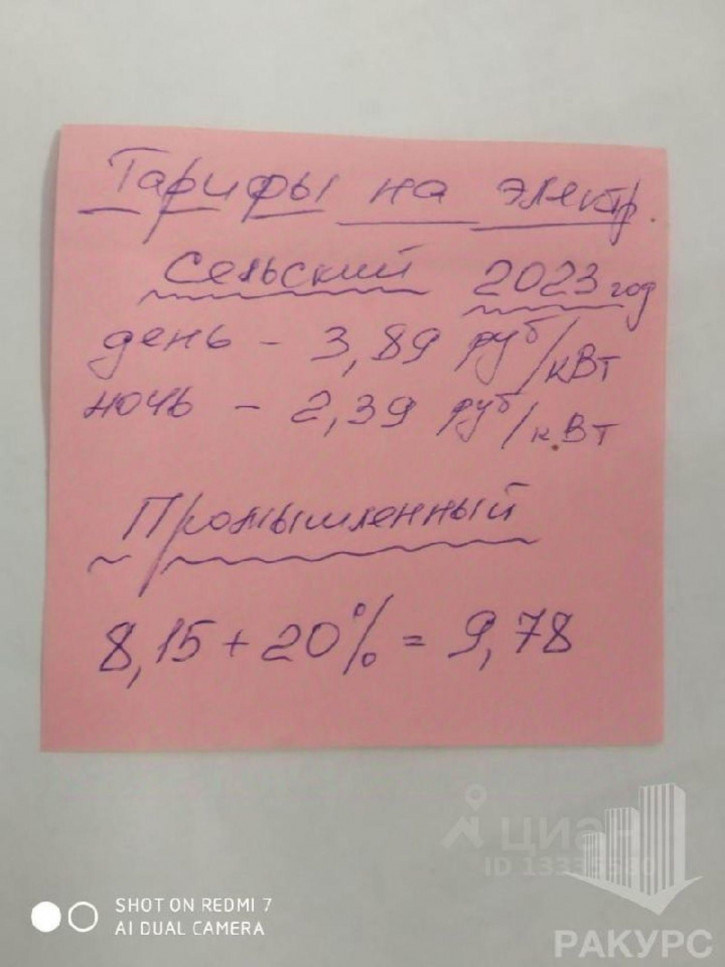 Тарифы на электр.
Сельский 2023 год
день – 3,89 руб/кВт
ночь – 2,39 руб/к.Вт
Промышленный
8,15 + 20% = 9,78
циан
SHOT ON REDMI 7
AI DUAL CAMERA
РАКУРС